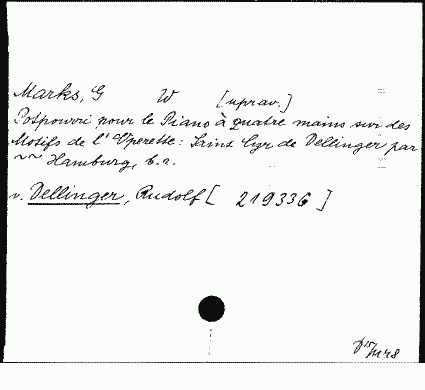 Marks, G W [uprav.]
Potpourri pour le Piano à quatre mains sur des
Motifs de l'Operette: Saint Cyr de Dellinger par
~~ Hamburg, b.r.
v. Dellinger, Rudolf [ 219336 ]